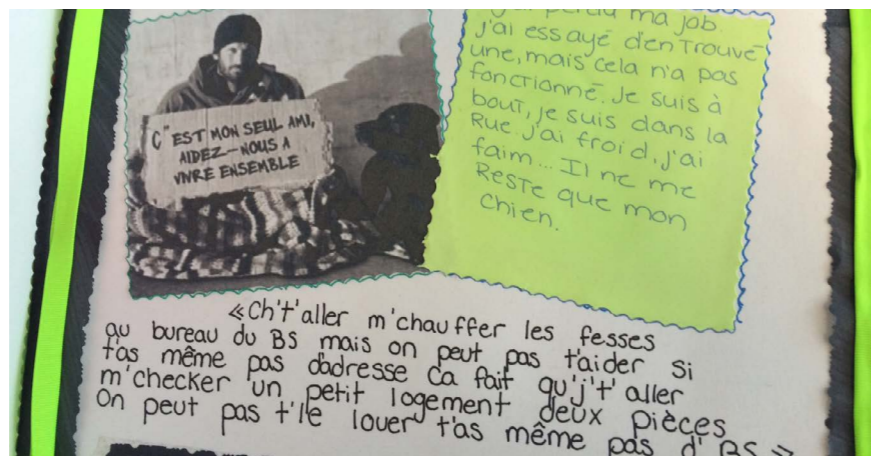 C'EST MON SEUL AMI,
AIDEZ-NOUS A
VIVRE ENSEMBLE
perdu ma job.
j'ai essayé d'en Trouvé
une, mais cela n'a pas
fonctionné. Je suis à
bout, je suis dans la
Rue. j'ai froid, j'ai
faim... Il ne me
Reste que mon
chien.
«Ch't'aller m'chauffer les fesses
au bureau du BS mais on peut pas t'aider si
t'as même pas d'adresse Ca fait qu'j't'aller
m'checker un petit logement deux pièces
On peut pas t'le louer t'as même pas d'BS»